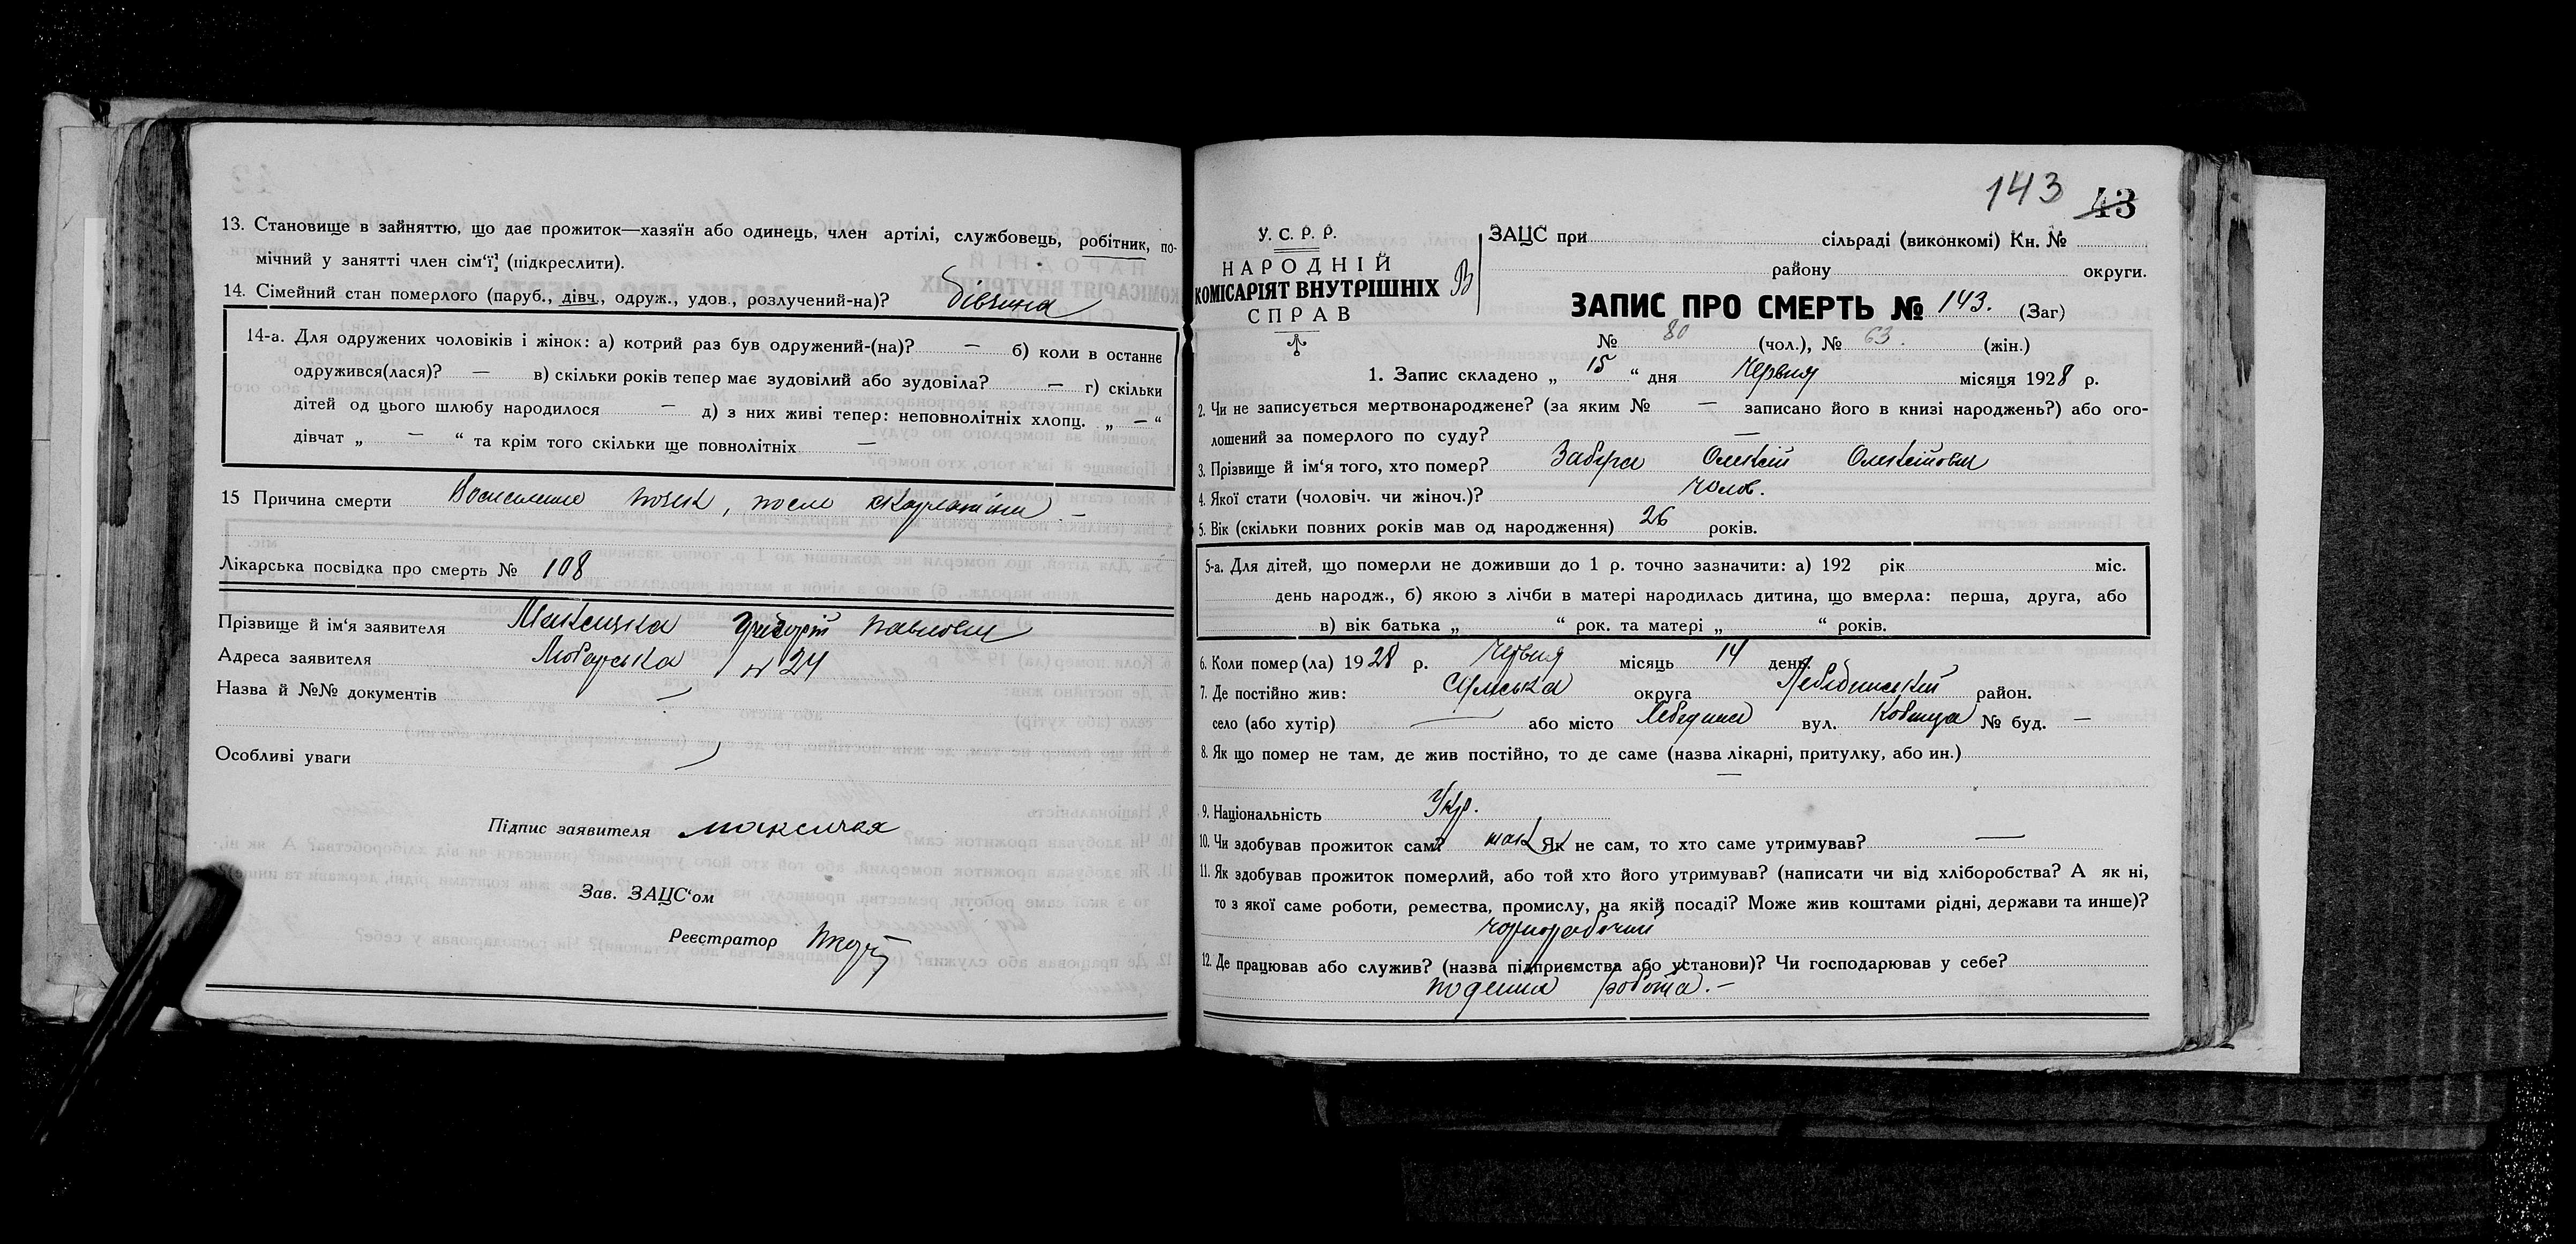 13. Становище в зайняттю, що дає прожиток—хазяїн або одинець, член артілі, службовець, робітник, по-
мічний у занятті член сім'ї (підкреслити).
14. Сімейний стан померлого (паруб., дівч., одруж., удов., розлучений-на)? дівчина
14-а. Для одружених чоловіків і жінок: а) котрий раз був одружений-(на)? — б) коли в останнє
одружився(лася)? — в) скільки років тепер має зудовілий або зудовіла? — г) скільки
дітей од цього шлюбу народилося — д) з них живі тепер: неповнолітніх хлопц. „ — “
дівчат „ — “ та крім того скільки ще повнолітніх —
15 Причина смерти Воспаление почек, после скарлатіни. —
Лікарська посвідка про смерть № 108
Прізвище й ім'я заявителя Максичка Григорій Павлович
Адреса заявителя Люборська № 24
Назва й №№ документів —
Особливі уваги
Підпис заявителя Максичка
Зав. ЗАЦС'ом
Реєстратор
143 43
У. С. Р. Р.
НАРОДНІЙ
КОМІСАРІЯТ ВНУТРІШНІХ
СПРАВ
В
ЗАЦС при сільраді (виконкомі) Кн. №
району округи.
ЗАПИС ПРО СМЕРТЬ № 143. (Заг)
№ 80 (чол.), № 63. (жін.)
1. Запис складено „ 15 “ дня Червня місяця 1928 р.
2. Чи не записується мертвонароджене? (за яким № — записано його в книзі народжень?) або ого-
лошений за померлого по суду? —
3. Прізвище й ім'я того, хто помер? Забура Олексій Олексійович
4. Якої стати (чоловіч. чи жіноч.)? Чолов.
5. Вік (скільки повних років мав од народження) 26 років.
5-а. Для дітей, що померли не доживши до 1 р. точно зазначити: а) 192 рік міс.
день народж., б) якою з лічби в матері народилась дитина, що вмерла: перша, друга, або
в) вік батька „ “ рок. та матері „ “ років.
6. Коли помер(ла) 1928 р. Червня місяць 14 день.
7. Де постійно жив: Сумська округа Лебединський район.
село (або хутір) — або місто Лебедин вул. Кобища № буд. —
8. Як що помер не там, де жив постійно, то де саме (назва лікарні, притулку, або ин.)
—
9. Національність Укр.
10. Чи здобував прожиток сам? так Як не сам, то хто саме утримував? —
11. Як здобував прожиток померлий, або той хто його утримував? (написати чи від хліборобства? А як ні,
то з якої саме роботи, ремества, промислу, на якій посаді? Може жив коштами рідні, держави та инше)?
чорнорабочий
12. Де працював або служив? (назва підприємства або установи)? Чи господарював у себе?
поденна робота. —